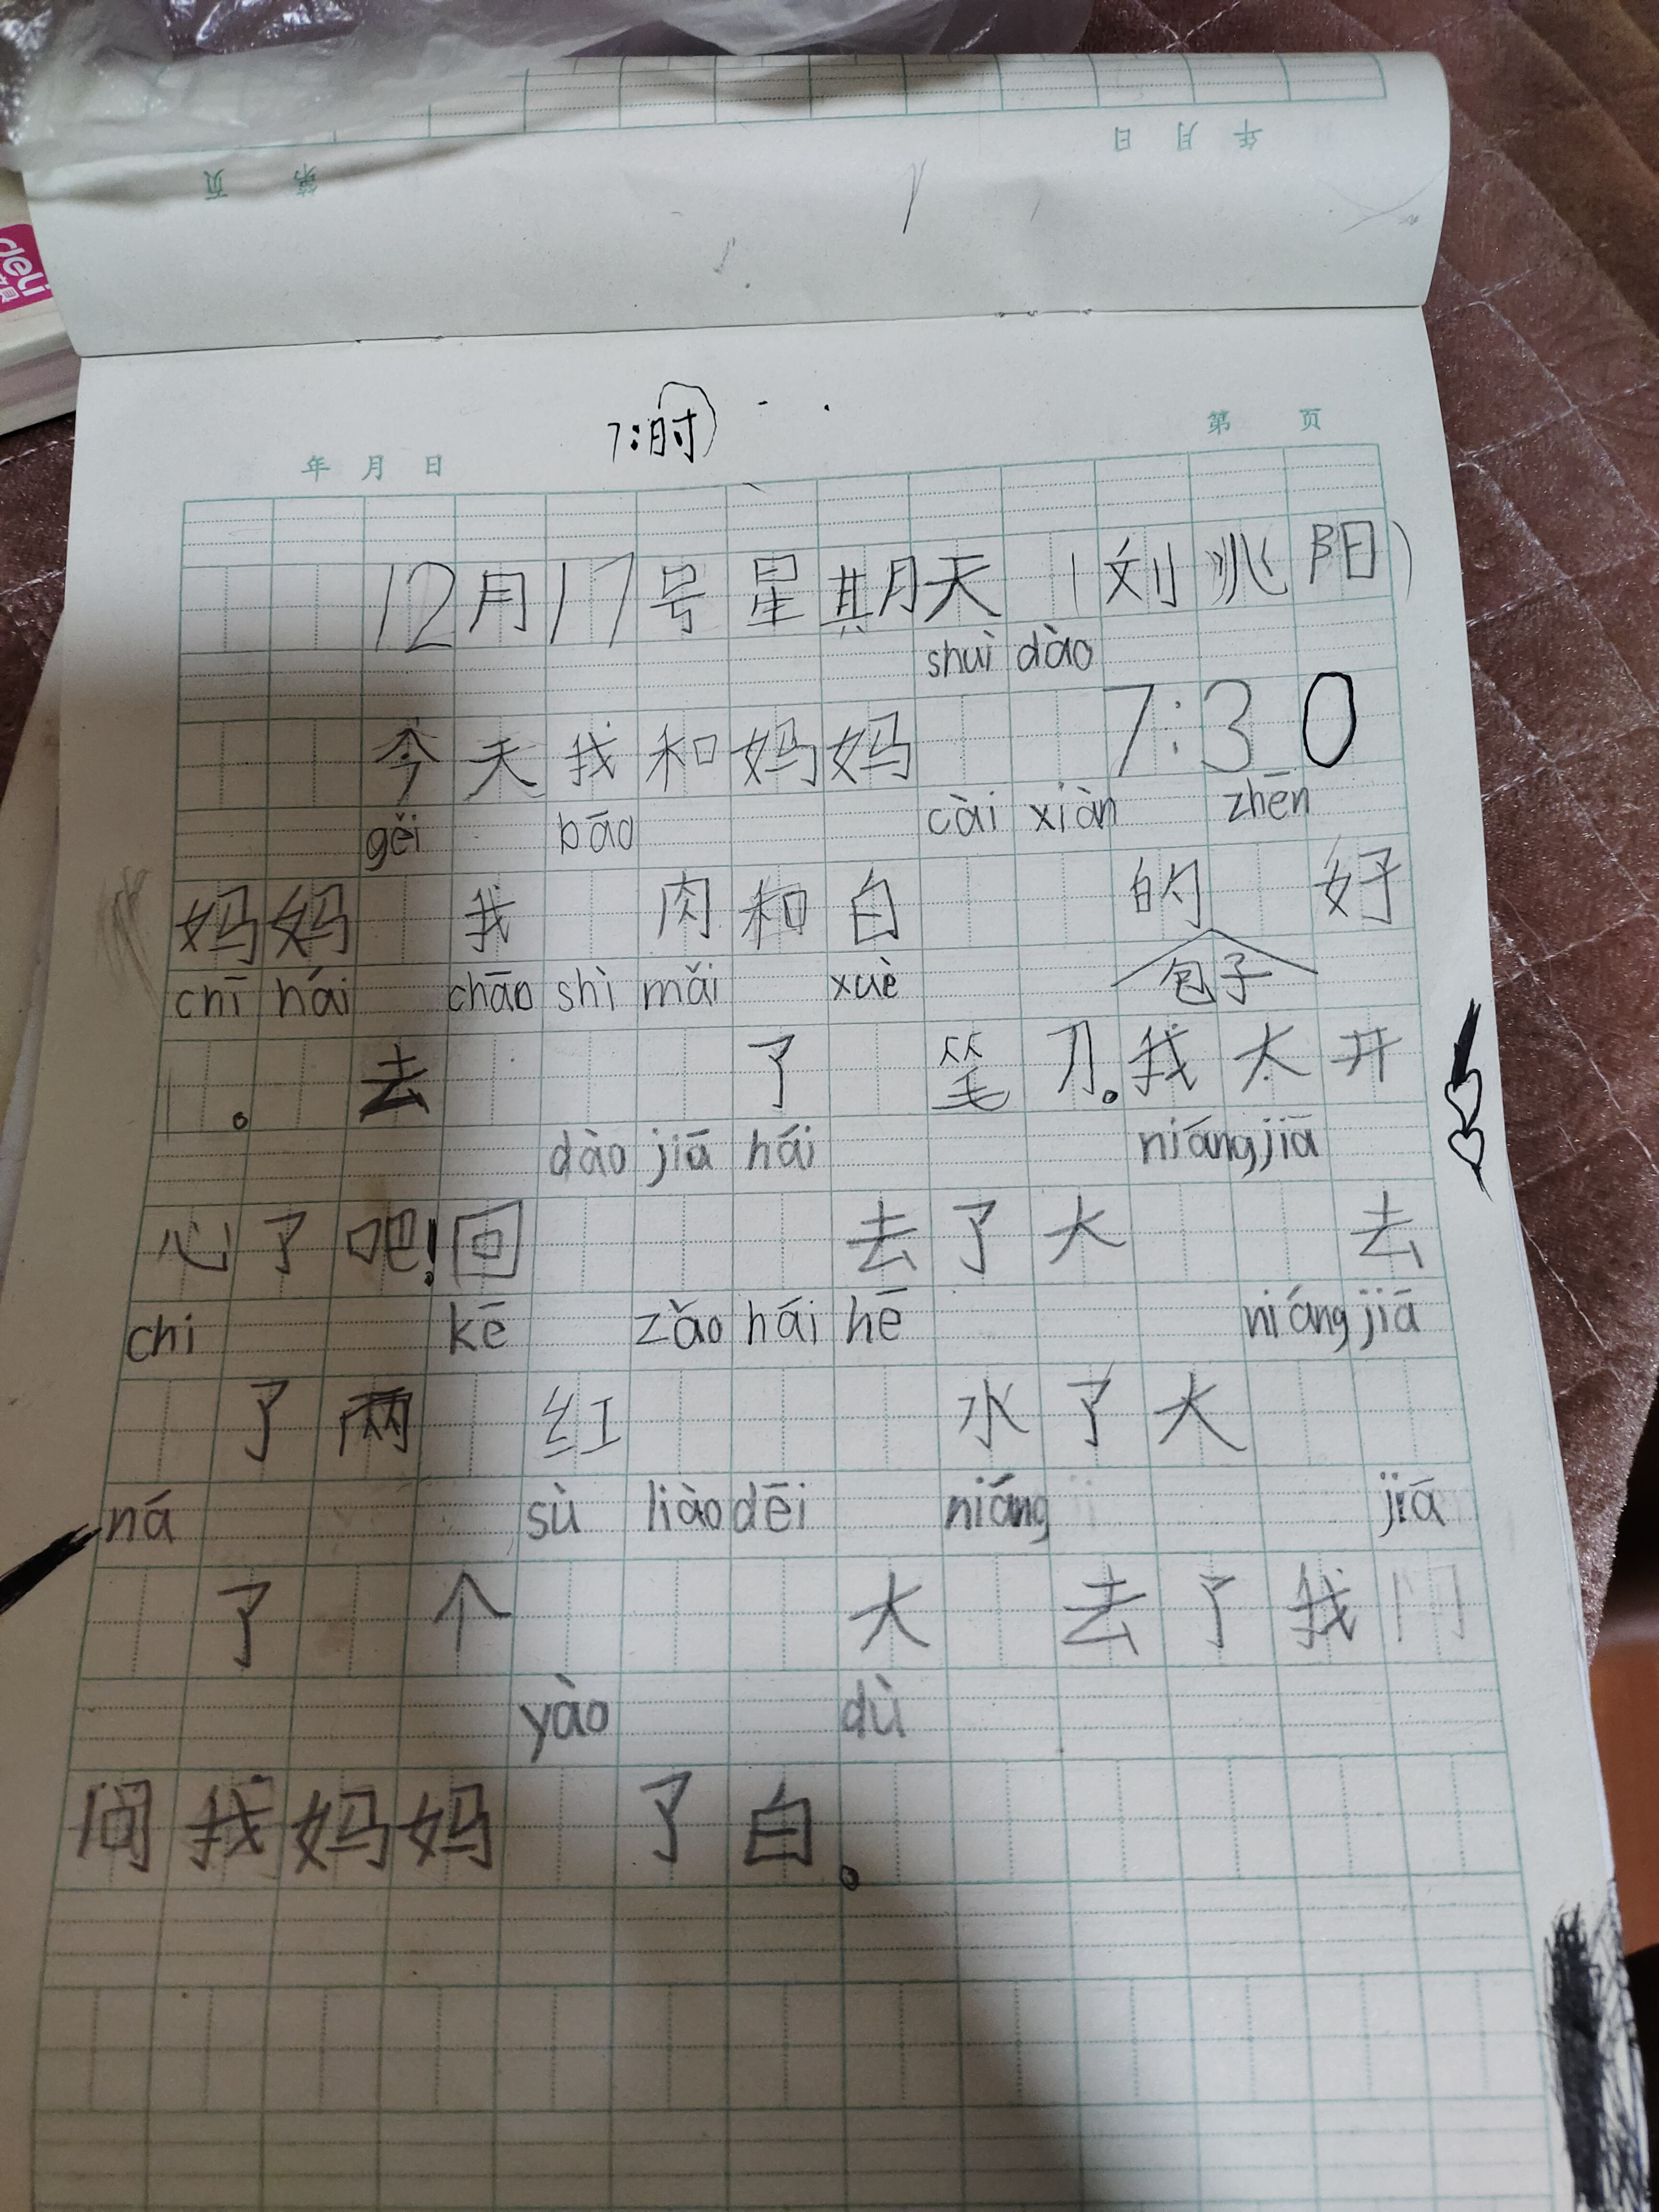 deli
年 月 日
第 页
7:时
年 月 日
第 页
12月17号星期天（刘兆阳）
shuì dào
今天我和妈妈 7:30
gěi bāo cài xiàn zhēn
妈妈 我 肉和白 的 好
包子
chī hái chāo shì mǎi xuè
。去 了 笔刀。我太开
dào jiā hái niáng jiā
心了吧！回 去了大 去
chi kē zǎo hái hē niáng jiā
了两 红 水了大
ná sù liào dēi niáng jiā
了 个 大 去了我门
yào dù
间我妈妈 了白。